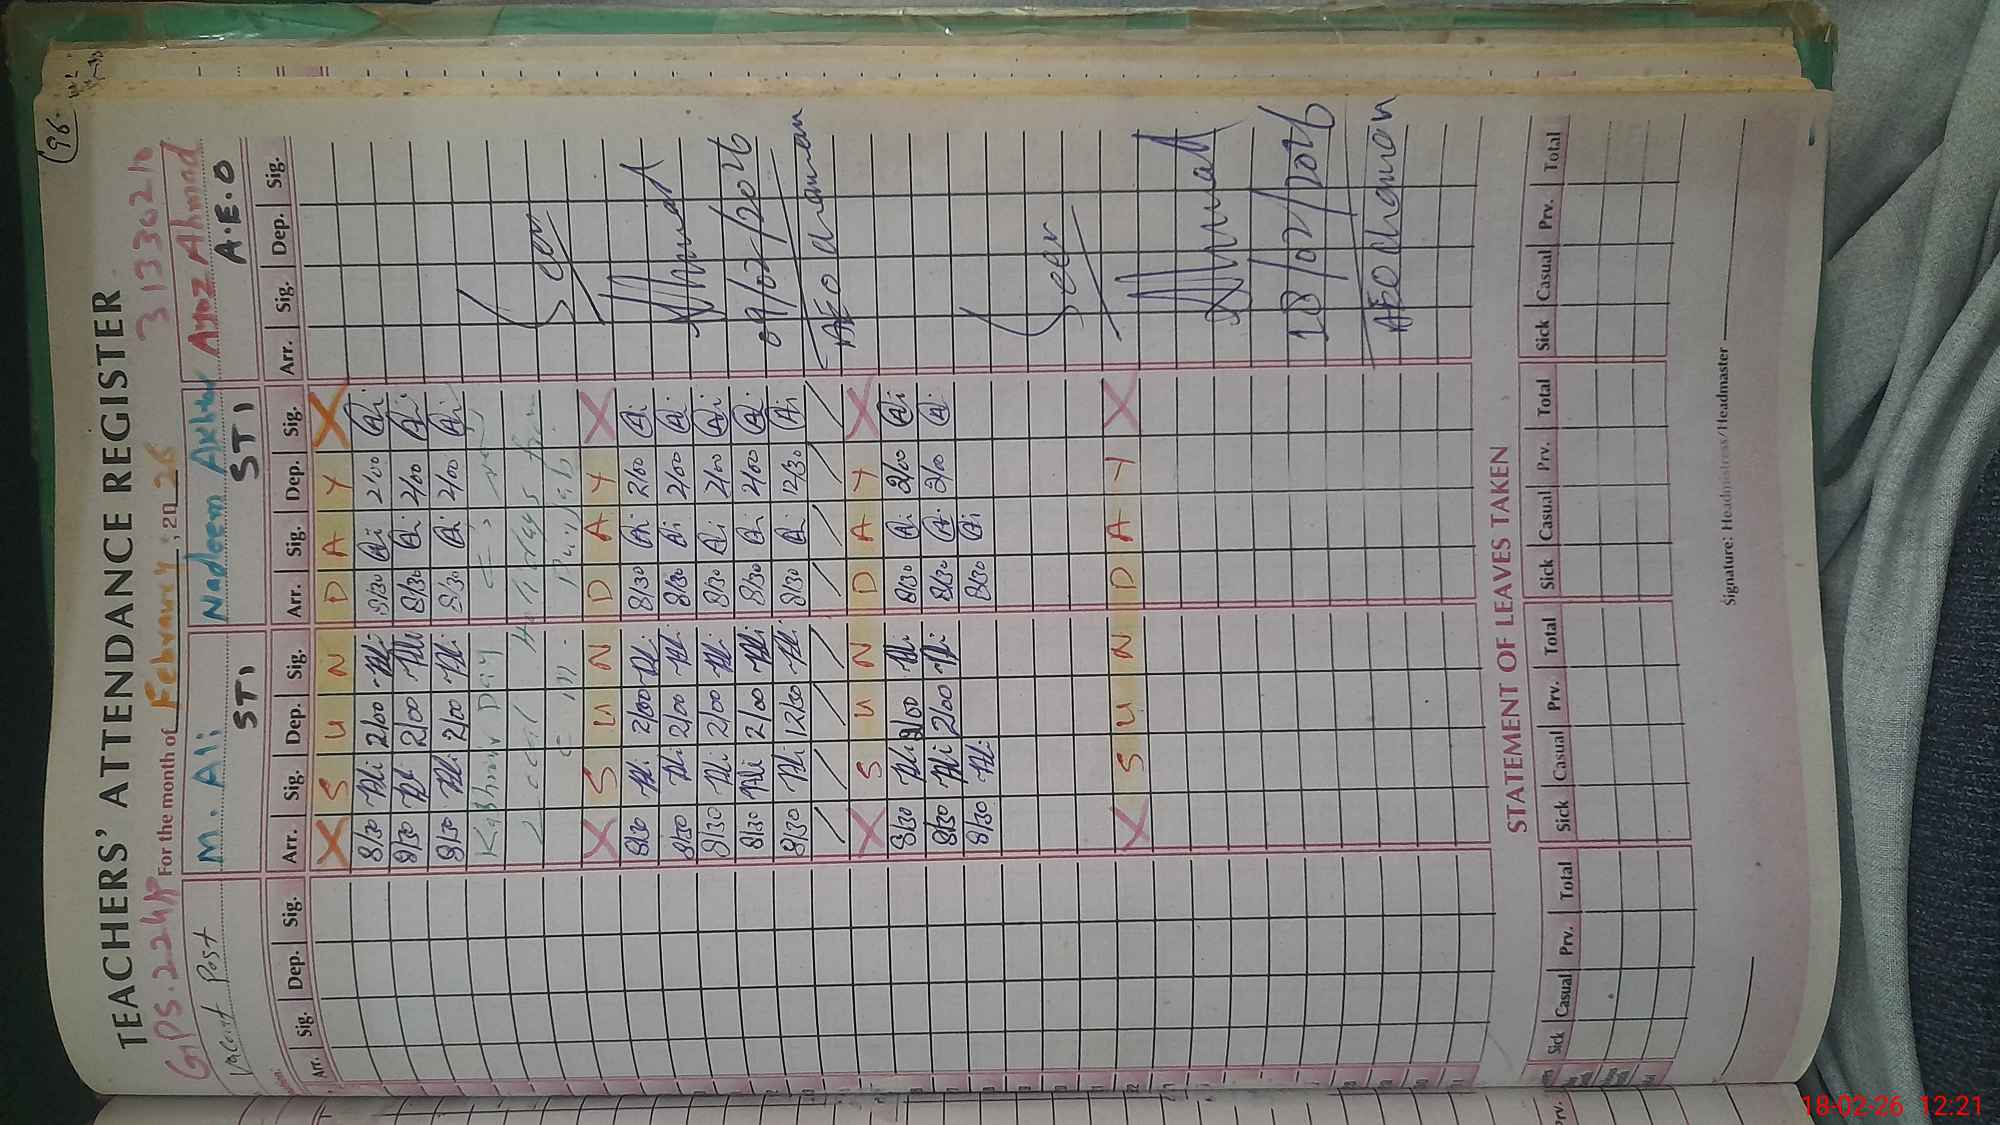 96.
TEACHERS' ATTENDANCE REGISTER
GPS. 224P For the month of February ; 20 26 31330210
Vacant Post M. Ali Nadeem Akhtar Ayaz Ahmad
STI STI A.E.O
Arr. Sig. Dep. Sig. Arr. Sig. Dep. Sig. Arr. Sig. Dep. Sig. Arr. Sig. Dep. Sig.
X S U N D A Y X
8/30 Ali 2/00 Ali 8/30 Ai 2/00 Ai
8/30 Ali 2/00 Ali 8/30 Ai 2/00 Ai
8/30 Ali 2/00 Ali 8/30 Ai 2/00 Ai
Kashmir Day
Local Holidays from
Punjab
Seen
X S U N D A Y X
8/30 Ali 2/00 Ali 8/30 Ai 2/00 Ai
8/30 Ali 2/00 Ali 8/30 Ai 2/00 Ai
8/30 Ali 2/00 Ali 8/30 Ai 2/00 Ai
8/30 Ali 2/00 Ali 8/30 Ai 2/00 Ai
8/30 Ali 12/30 Ali 8/30 Ai 12/30 Ai
Ahmad
09/02/2026
AEO Chaman
X S U N D A Y X
8/30 Ali 2/00 Ali 8/30 Ai 2/00 Ai
8/30 Ali 2/00 Ali 8/30 Ai 2/00 Ai
8/30 Ali 8/30 Ai
Seen
X S U N D A Y X
Ahmad
18/02/2026
AEO Chaman
STATEMENT OF LEAVES TAKEN
Sick Casual Prv. Total Sick Casual Prv. Total Sick Casual Prv. Total Sick Casual Prv. Total
Signature: Headmistress/Headmaster
Prv. Total
18-02-26 12:21